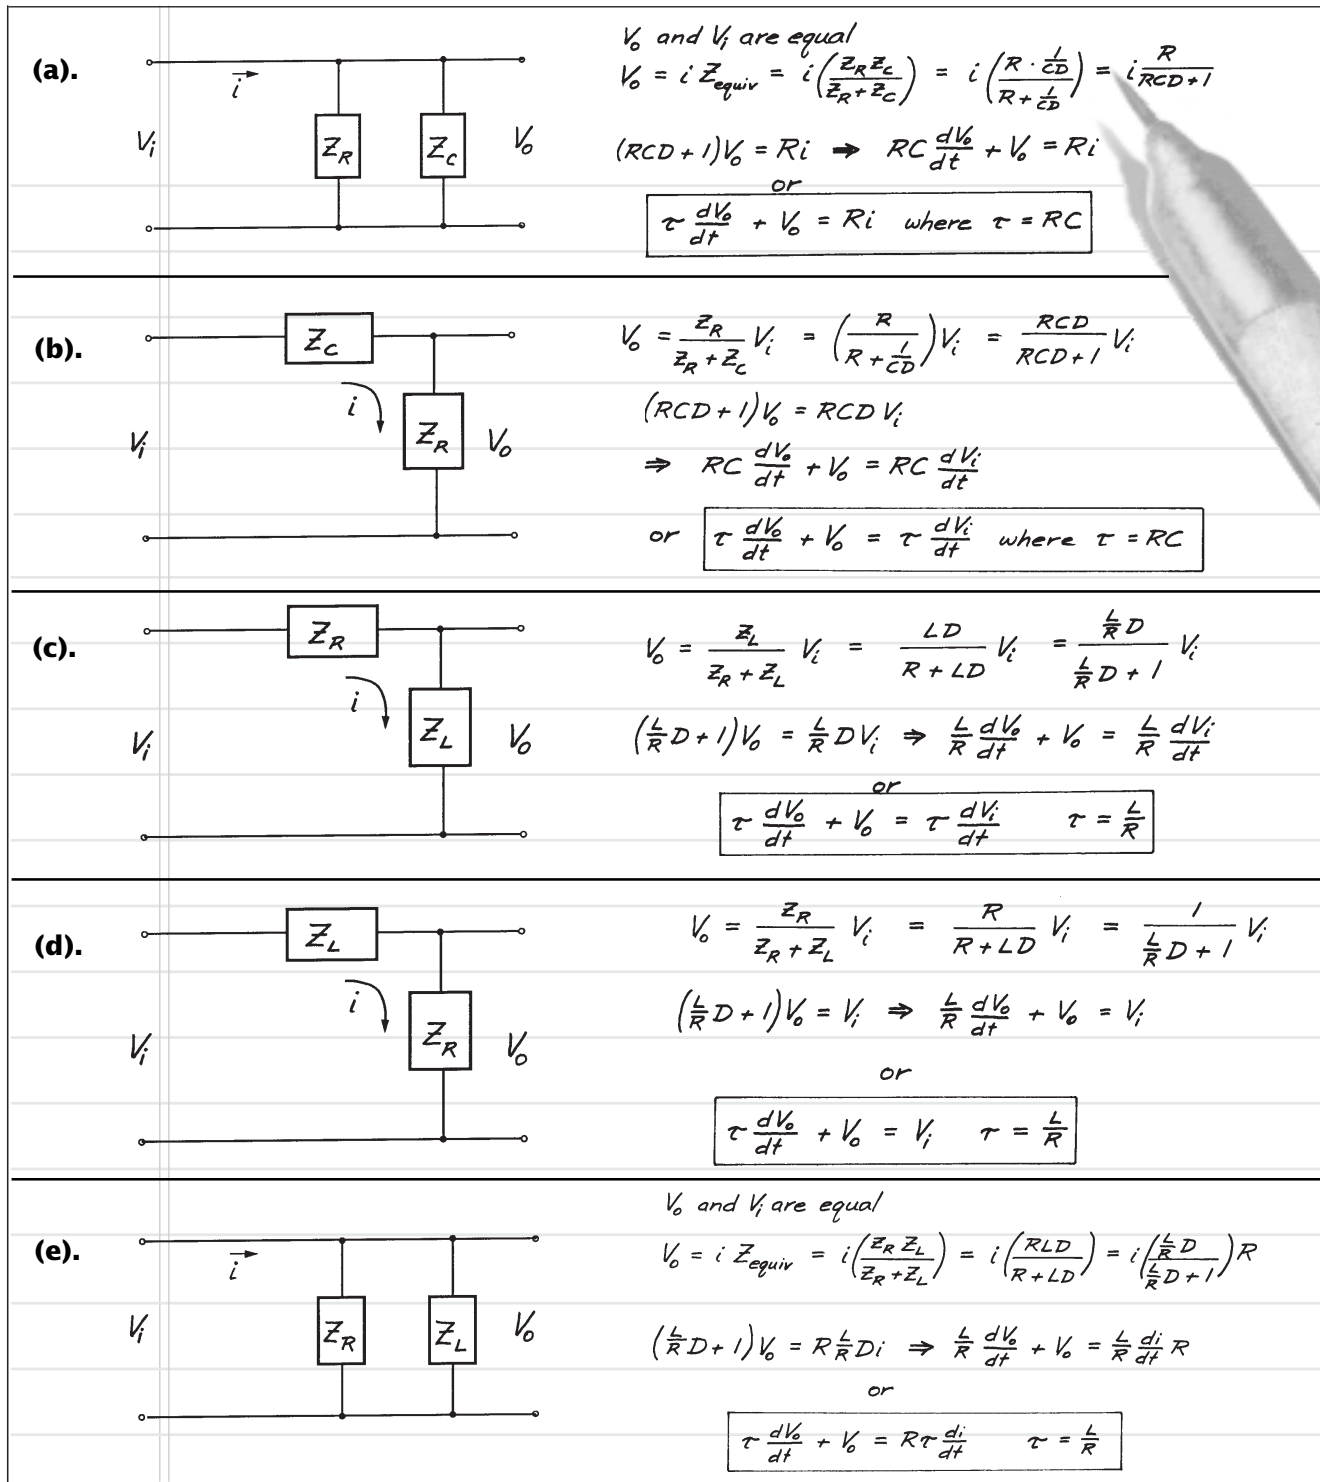 (a).
i
V_i
Z_R
Z_C
V_o
V_o and V_i are equal
V_o = i Z_equiv = i(Z_R Z_C / (Z_R + Z_C)) = i((R · 1/CD) / (R + 1/CD)) = i R/(RCD+1)
(RCD+1)V_o = Ri ⇒ RC dV_o/dt + V_o = Ri
or
τ dV_o/dt + V_o = Ri where τ = RC
(b).
Z_C
i
V_i
Z_R
V_o
V_o = Z_R/(Z_R + Z_C) V_i = (R/(R + 1/CD))V_i = RCD/(RCD+1) V_i
(RCD+1)V_o = RCD V_i
⇒ RC dV_o/dt + V_o = RC dV_i/dt
or τ dV_o/dt + V_o = τ dV_i/dt where τ = RC
(c).
Z_R
i
V_i
Z_L
V_o
V_o = Z_L/(Z_R + Z_L) V_i = LD/(R + LD) V_i = (L/R D)/(L/R D + 1) V_i
(L/R D + 1)V_o = L/R D V_i ⇒ L/R dV_o/dt + V_o = L/R dV_i/dt
or
τ dV_o/dt + V_o = τ dV_i/dt τ = L/R
(d).
Z_L
i
V_i
Z_R
V_o
V_o = Z_R/(Z_R + Z_L) V_i = R/(R + LD) V_i = 1/(L/R D + 1) V_i
(L/R D + 1)V_o = V_i ⇒ L/R dV_o/dt + V_o = V_i
or
τ dV_o/dt + V_o = V_i τ = L/R
(e).
i
V_i
Z_R
Z_L
V_o
V_o and V_i are equal
V_o = i Z_equiv = i(Z_R Z_L/(Z_R + Z_L)) = i(RLD/(R + LD)) = i((L/R D)/(L/R D + 1))R
(L/R D + 1)V_o = R L/R Di ⇒ L/R dV_o/dt + V_o = L/R di/dt R
or
τ dV_o/dt + V_o = Rτ di/dt τ = L/R